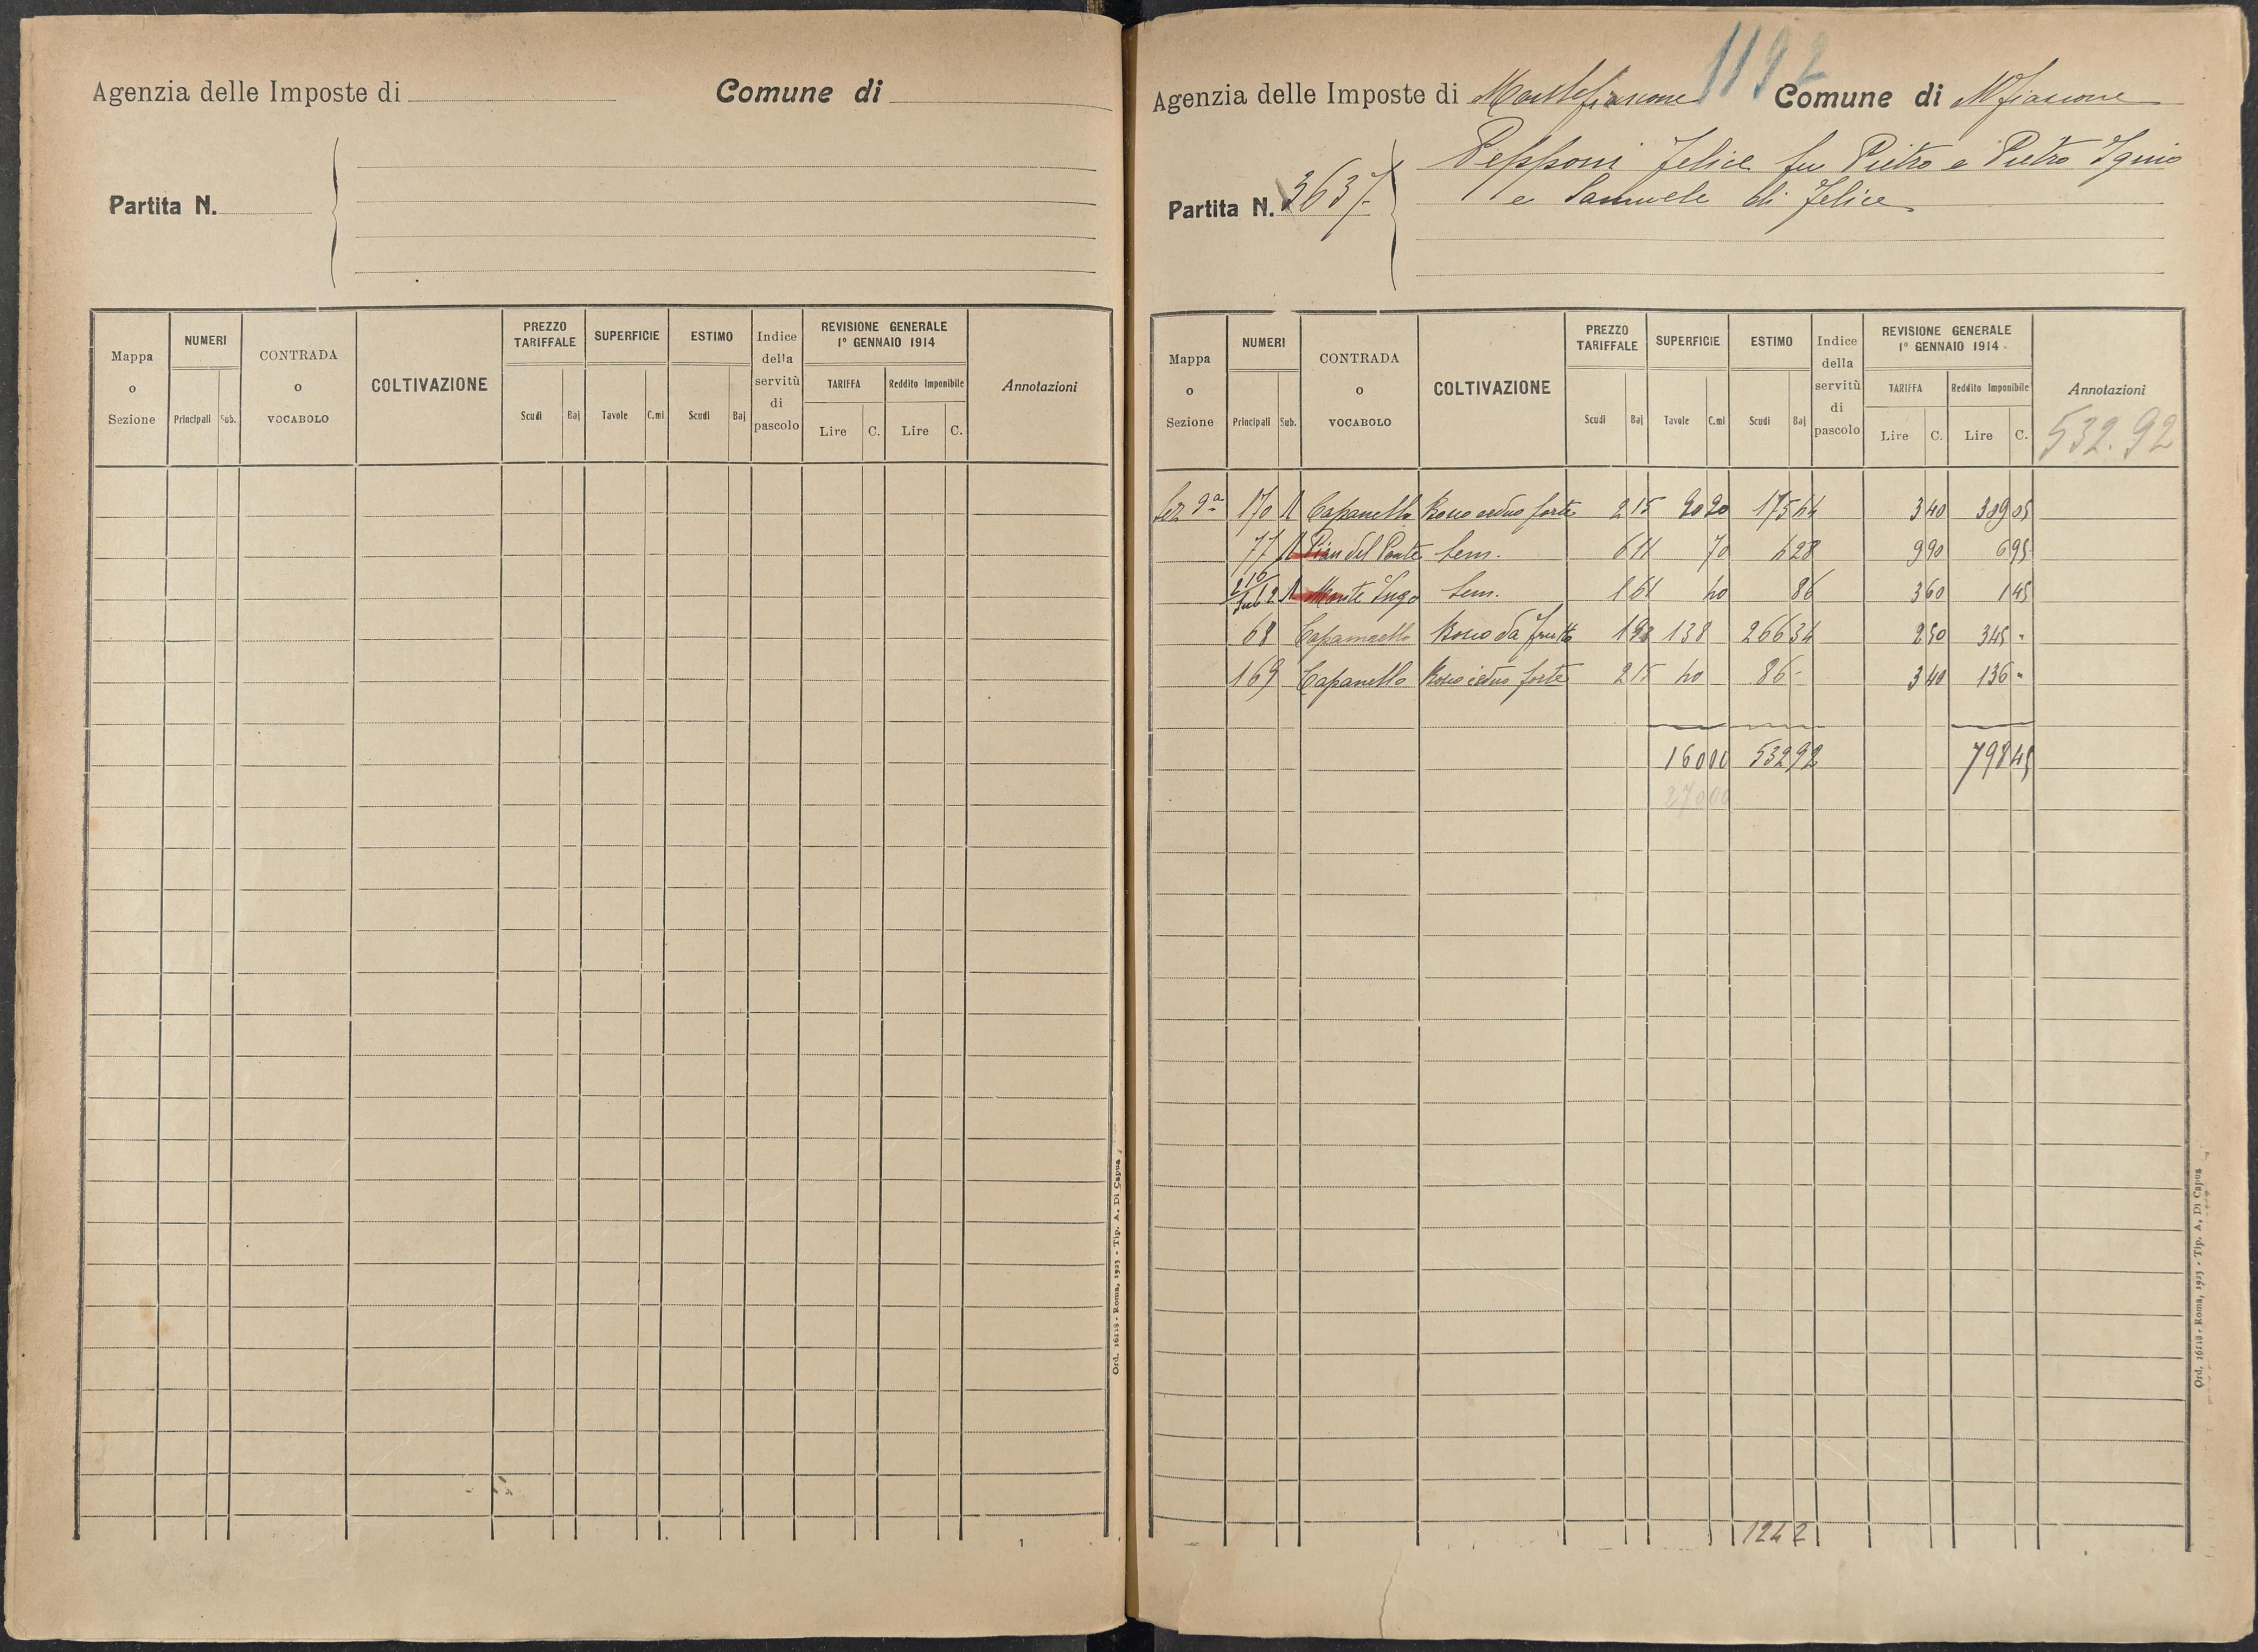 Agenzia delle Imposte di
Comune di
Partita N.
Mappa o Sezione
NUMERI
Principali
Sub.
CONTRADA o VOCABOLO
COLTIVAZIONE
PREZZO TARIFFALE
Scudi
Baj
SUPERFICIE
Tavole
C.mi
ESTIMO
Scudi
Baj
Indice della servitù di pascolo
REVISIONE GENERALE
1° GENNAIO 1914
TARIFFA
Lire
C.
Reddito Imponibile
Lire
C.
Annotazioni
Ord. 16118 - Roma, 1923 - Tip. A. Di Capua
1192
Agenzia delle Imposte di Montefiascone Comune di Mfiascone
Pepponi Felice fu Pietro e Pietro Iginio
Partita N. 3637
e Samuele di Felice
Mappa o Sezione
NUMERI
Principali
Sub.
CONTRADA o VOCABOLO
COLTIVAZIONE
PREZZO TARIFFALE
Scudi
Baj
SUPERFICIE
Tavole
C.mi
ESTIMO
Scudi
Baj
Indice della servitù di pascolo
REVISIONE GENERALE
1° GENNAIO 1914
TARIFFA
Lire
C.
Reddito Imponibile
Lire
C.
Annotazioni
532.92
Sez 9a 170 Capanello Bosco ceduo forte 2 15 175 44 3 40 309 05
77 Pian del Ponte Sem. 6 11 70 4 28 9 90 6 95
Monte Lugo Sem. 40 86 3 60 1 45
68 Bosco da frutto 1 93 138 266 34 2 50 345 "
169 Capanello Bosco ceduo forte 2 15 40 86 - 3 40 136 "
532 92 798 45
27000
1242
Ord. 16118 - Roma, 1923 - Tip. A. Di Capua